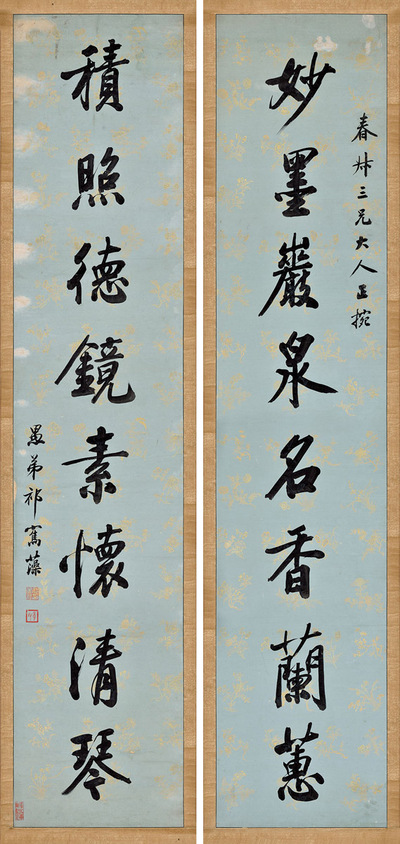 春
三兄大人正
妙墨巖泉名香蘭蕙
積照德鏡素懷清琴
愚弟祁寯藻